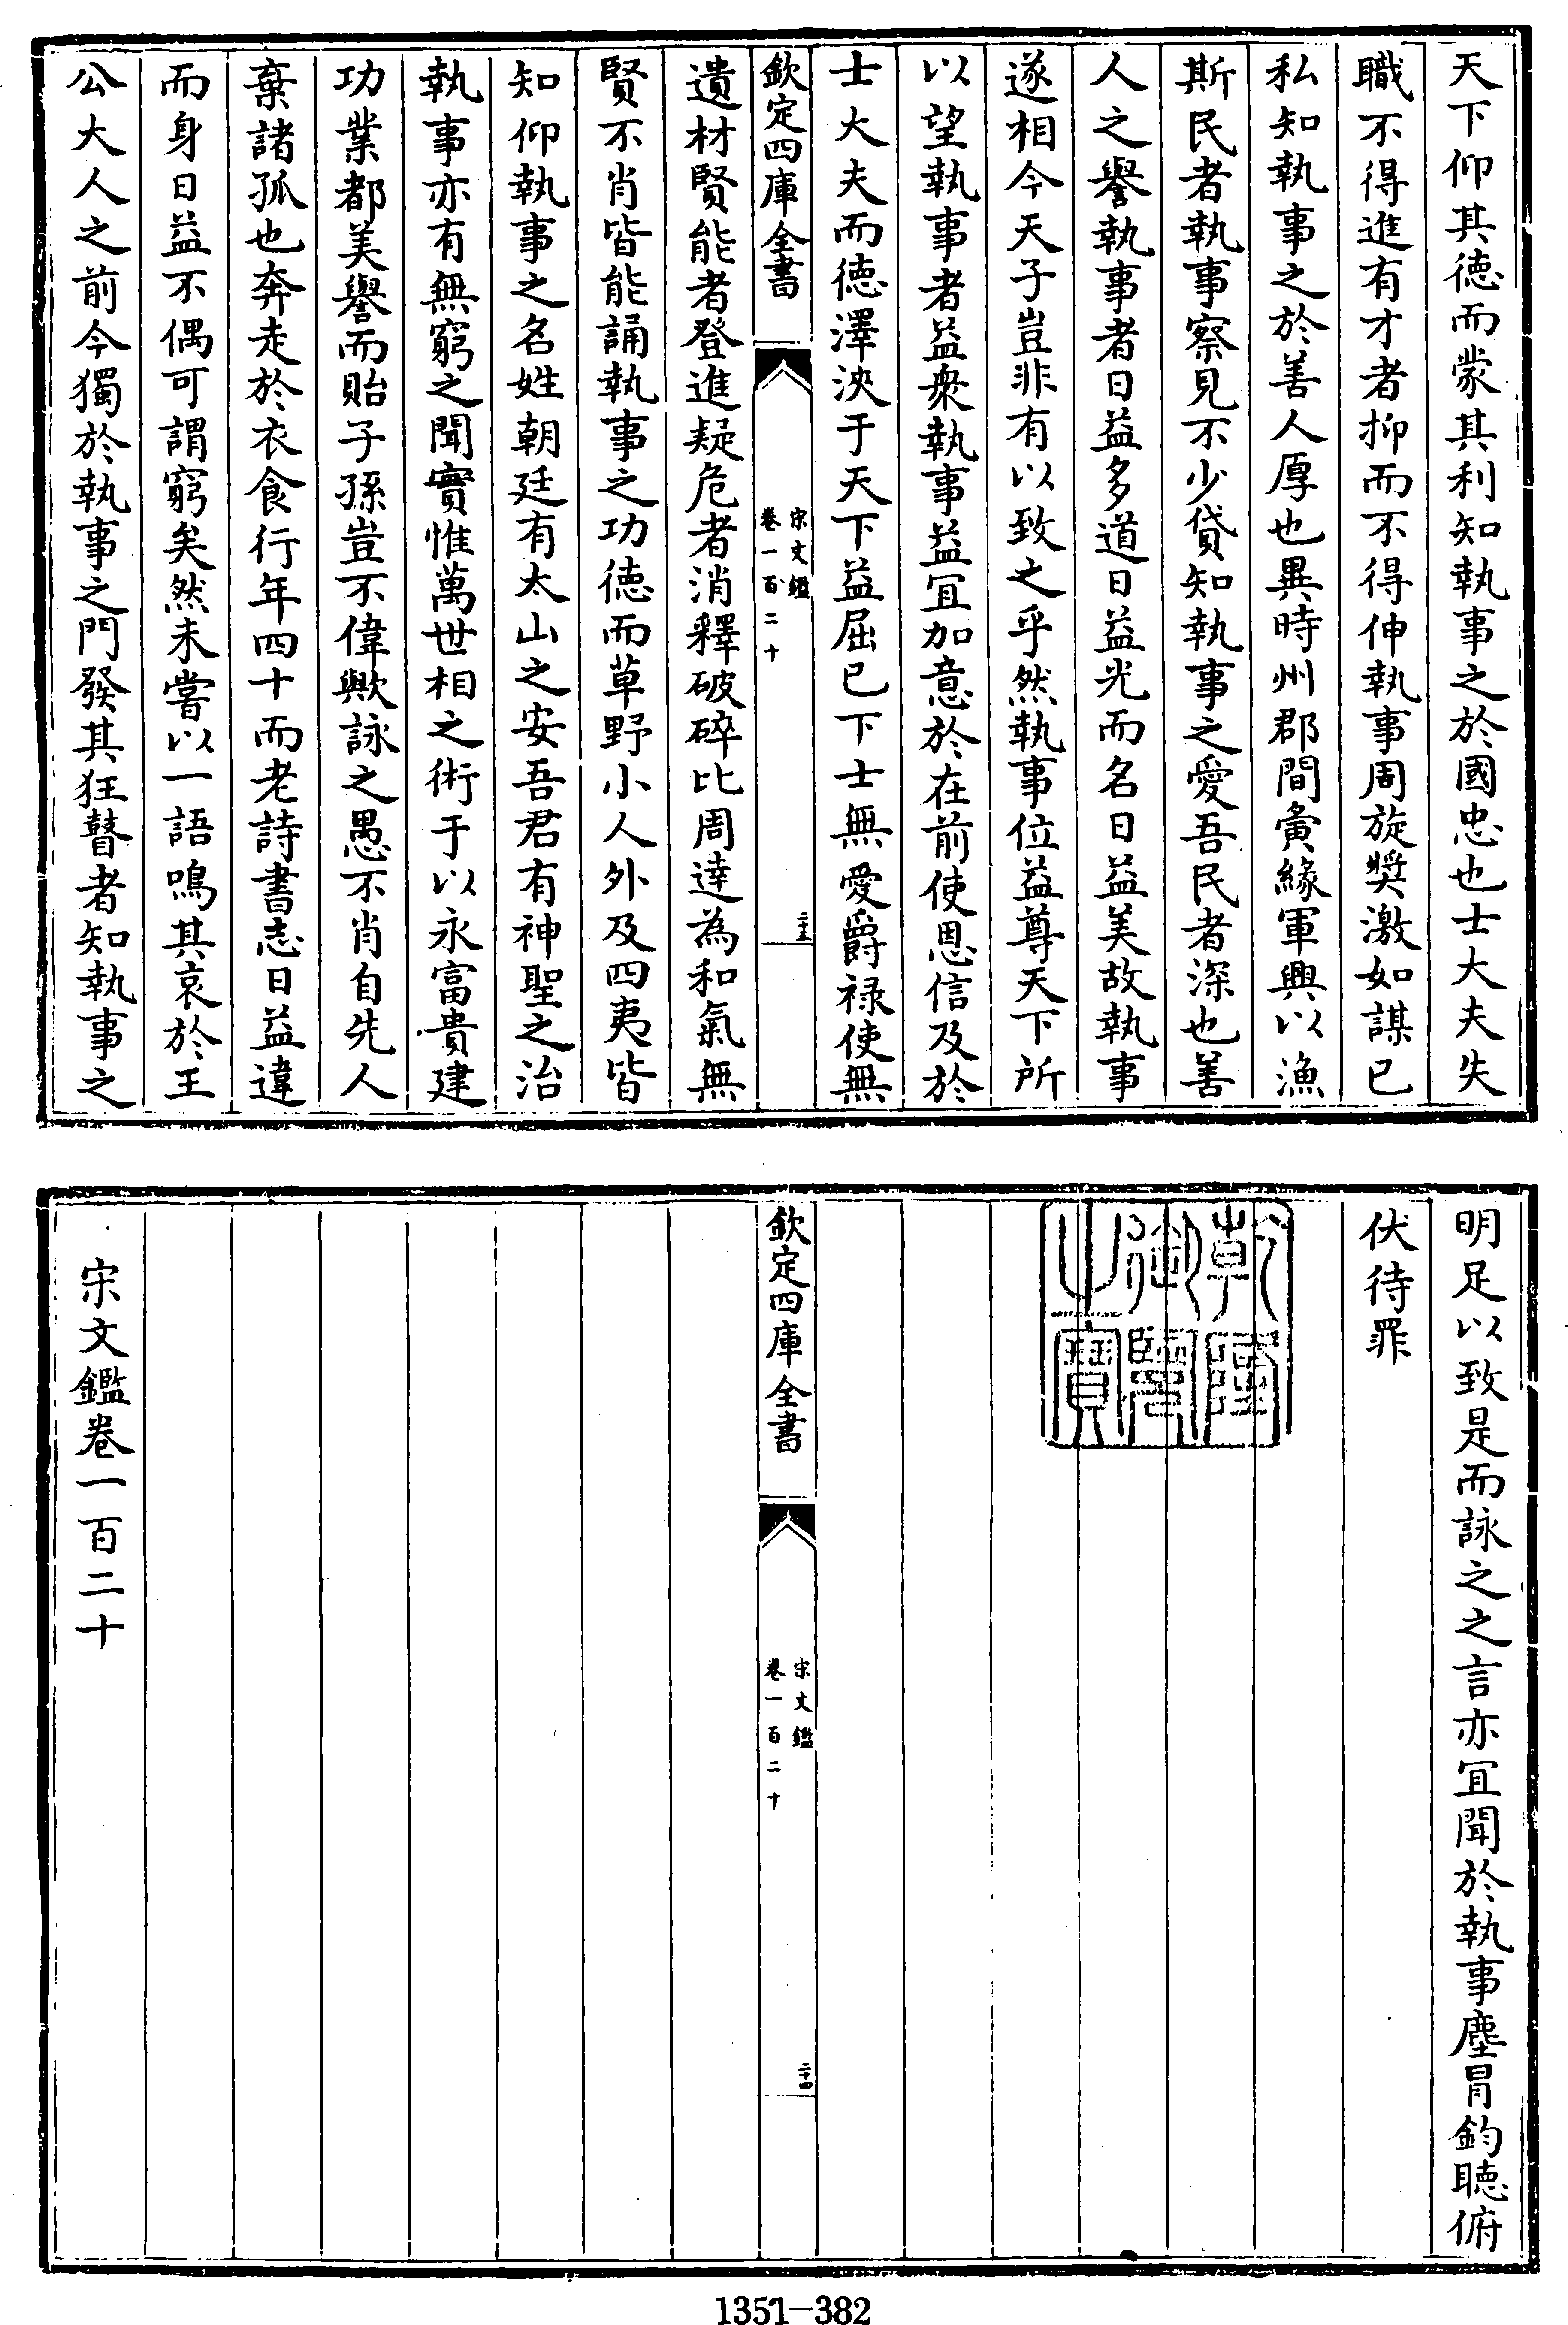 天下仰其徳而蒙其利知執事之於國忠也士大夫失
職不得進有才者抑而不得伸執事周旋奬激如謀已
私知執事之於善人厚也異時州郡間夤緣軍興以漁
斯民者執事察見不少貸知執事之愛吾民者深也善
人之譽執事者日益多道日益光而名日益美故執事
遂相今天子豈非有以致之乎然執事位益尊天下所
以望執事者益衆執事益宜加意於在前使恩信及於
士大夫而徳澤浹于天下益屈已下士無愛爵禄使無
欽定四庫全書
宋文鑑
卷一百二十
二十三
遺材賢能者登進疑危者消釋破碎比周逹為和氣無
賢不肖皆能誦執事之功徳而草野小人外及四夷皆
知仰執事之名姓朝廷有太山之安吾君有神聖之治
執事亦有無窮之聞實惟萬世相之術于以永富貴建
功業都美譽而貽子孫豈不偉歟詠之愚不肖自先人
棄諸孤也奔走於衣食行年四十而老詩書志日益違
而身日益不偶可謂窮矣然未嘗以一語鳴其哀於王
公大人之前今獨於執事之門發其狂瞽者知執事之
明足以致是而詠之之言亦宜聞於執事塵冐鈞聴俯
伏待罪
乾隆御覽之寶
欽定四庫全書
宋文鑑
卷一百二十
二十四
宋文鑑卷一百二十
1351-382